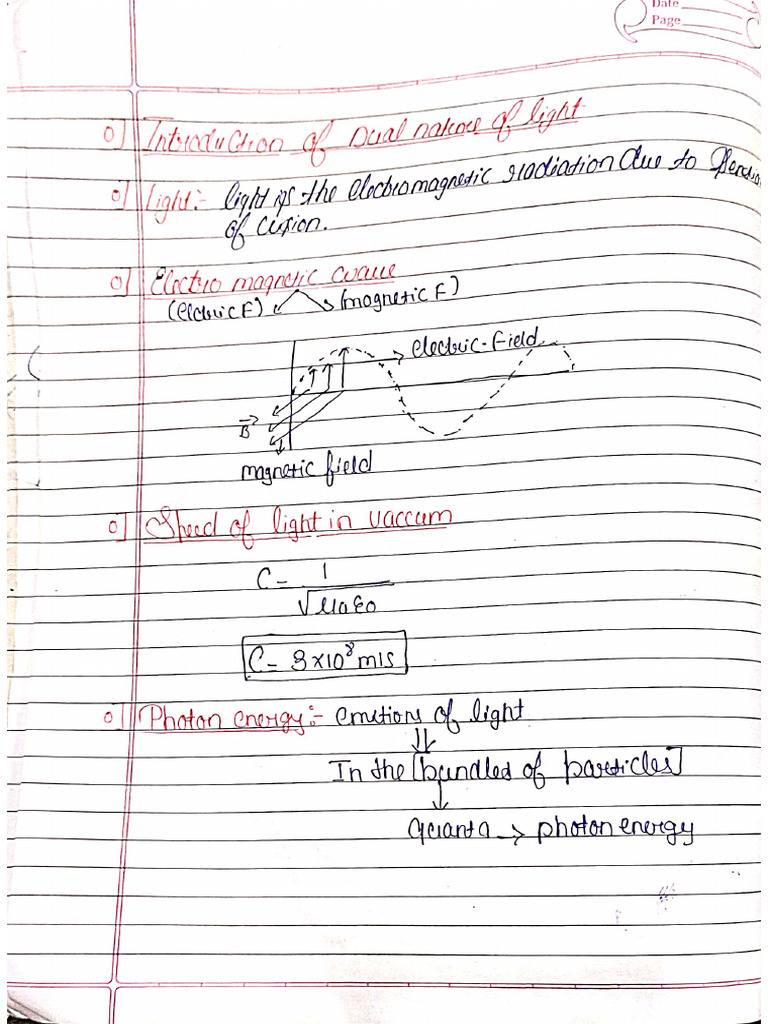 Date
Page
Introduction of Dual nature of light
Light:- light is the electromagnetic radiation due to
of
Electro magnetic wave
(elctric F) (magnetic F)
electric-field
B
magnetic field
Speed of light in vaccum
C = 1
√μ0ε0
C = 3×10⁸ m/s
Photon energy:- emetions of light
In the [bundles of particles]
quanta → photon energy